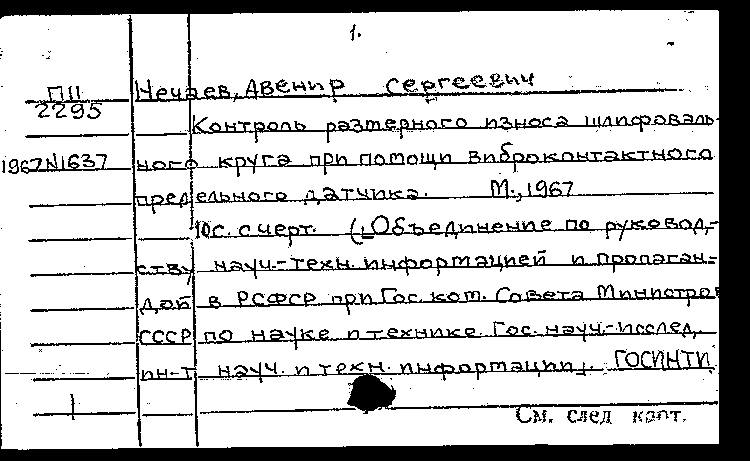 1.
П11
2295
Нечаев, Авенир Сергеевич
Контроль размерного износа шлифоваль-
1967 N1637
ного круга при помощи виброконтактного
предельного датчика. М., 1967
10с. с черт. ([Объединение по руковод-
ству науч.-техн. информацией и пропаган-
дой в РСФСР при Гос. ком. Совета Министров
СССР по науке и технике. Гос. науч.-исслед.
ин-т науч. и техн. информации]. ГОСИНТИ.
1
См. след карт.